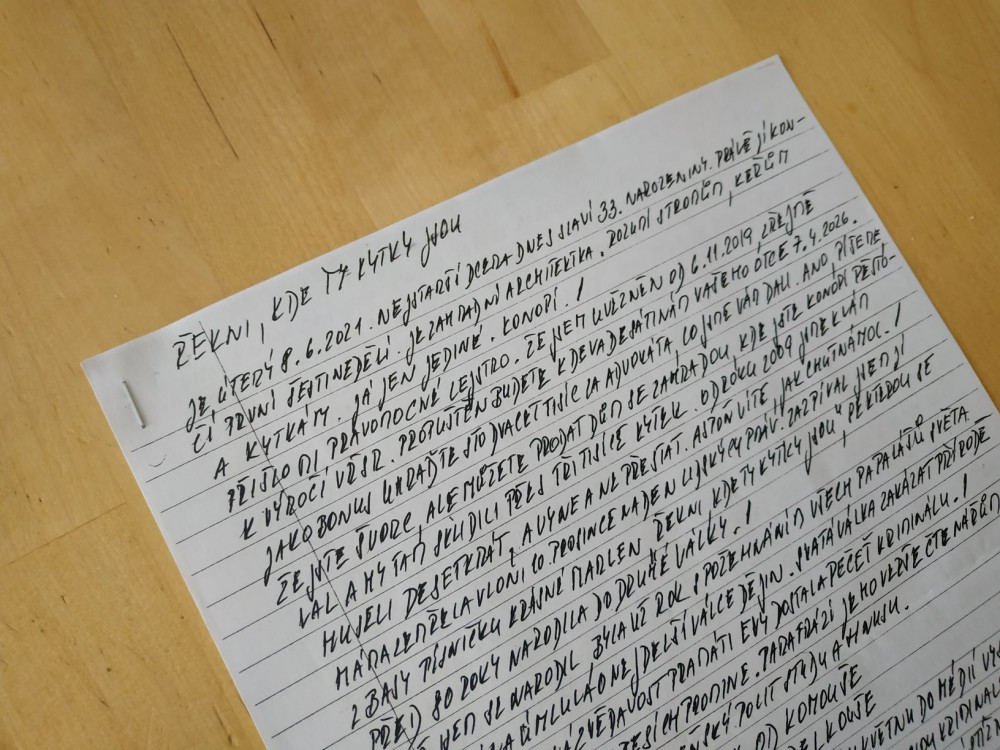 ŘEKNI, KDE TY KYTKY JSOU
JE ÚTERÝ 8.6.2021. NEJSTARŠÍ DCERA DNES SLAVÍ 33. NAROZENINY. PRÁVĚ JÍ KON-
ČÍ PRVNÍ ŠESTINEDĚLÍ. JE ZAHRADNÍ ARCHITEKTKA. ROZUMÍ STROMŮM, KEŘŮM
A KYTKÁM. JÁ JEN JEDINÉ. KONOPÍ.!
PŘIŠLO MI PRAVOMOCNÉ LEJSTRO. ŽE JSEM UVĚZNĚN OD 6.11.2019, ZŘEJMĚ
K VÝROČÍ VŘSR. PROPUŠTĚN BUDETE K DEVADESÁTINÁM VAŠEHO OTCE 7.4.2026.
JAKO BONUS UHRAĎTE STO DVACET TISÍC ZA ADVOKÁTA, CO JSME VÁM DALI. ANO, PÍŠETE,
ŽE JSTE ŠVORC, ALE MŮŽETE PRODAT DŮM SE ZAHRADOU, KDE JSTE KONOPÍ PĚSTO-
VAL A MY TAM SKLIDILI PŘES TŘI TISÍCE KYTEK. OD ROKU 2009 JSME K VÁM
MUSELI DESETKRÁT, A VY NE A NE PŘESTAT. ASPOŇ VÍTE, JAK CHUTNÁ MOC.!
MÁMA ZEMŘELA VLONI 10. PROSINCE NA DEN LIDSKÝCH PRÁV. ZAZPÍVAL JSEM JÍ
Z BASY PÍSNIČKU KRÁSNÉ MARLEN ŘEKNI, KDE TY KYTKY JSOU,
PŘED 80 ROKY NARODILA DO DRUHÉ VÁLKY.!
JEN SE NARODIL BYLA UŽ ROK S POŽEHNÁNÍM VŠECH PAPALÁŠŮ SVĚTA
ÚMLUVA O NEJDELŠÍ VÁLCE DĚJIN. SVATÁ VÁLKA ZAKÁZAT PŘÍRODĚ
ZVĚDAVOST PRAMÁTI EVY DOSTALA PEČEŤ KRIMINÁLU.!
PARAFRÁZÍ JEHO VERŠE ČTE NÁČŮM
POLIT STUDU A HNUSU.
OD KOMOUŠE
KVĚTNU DO MÉDIÍ